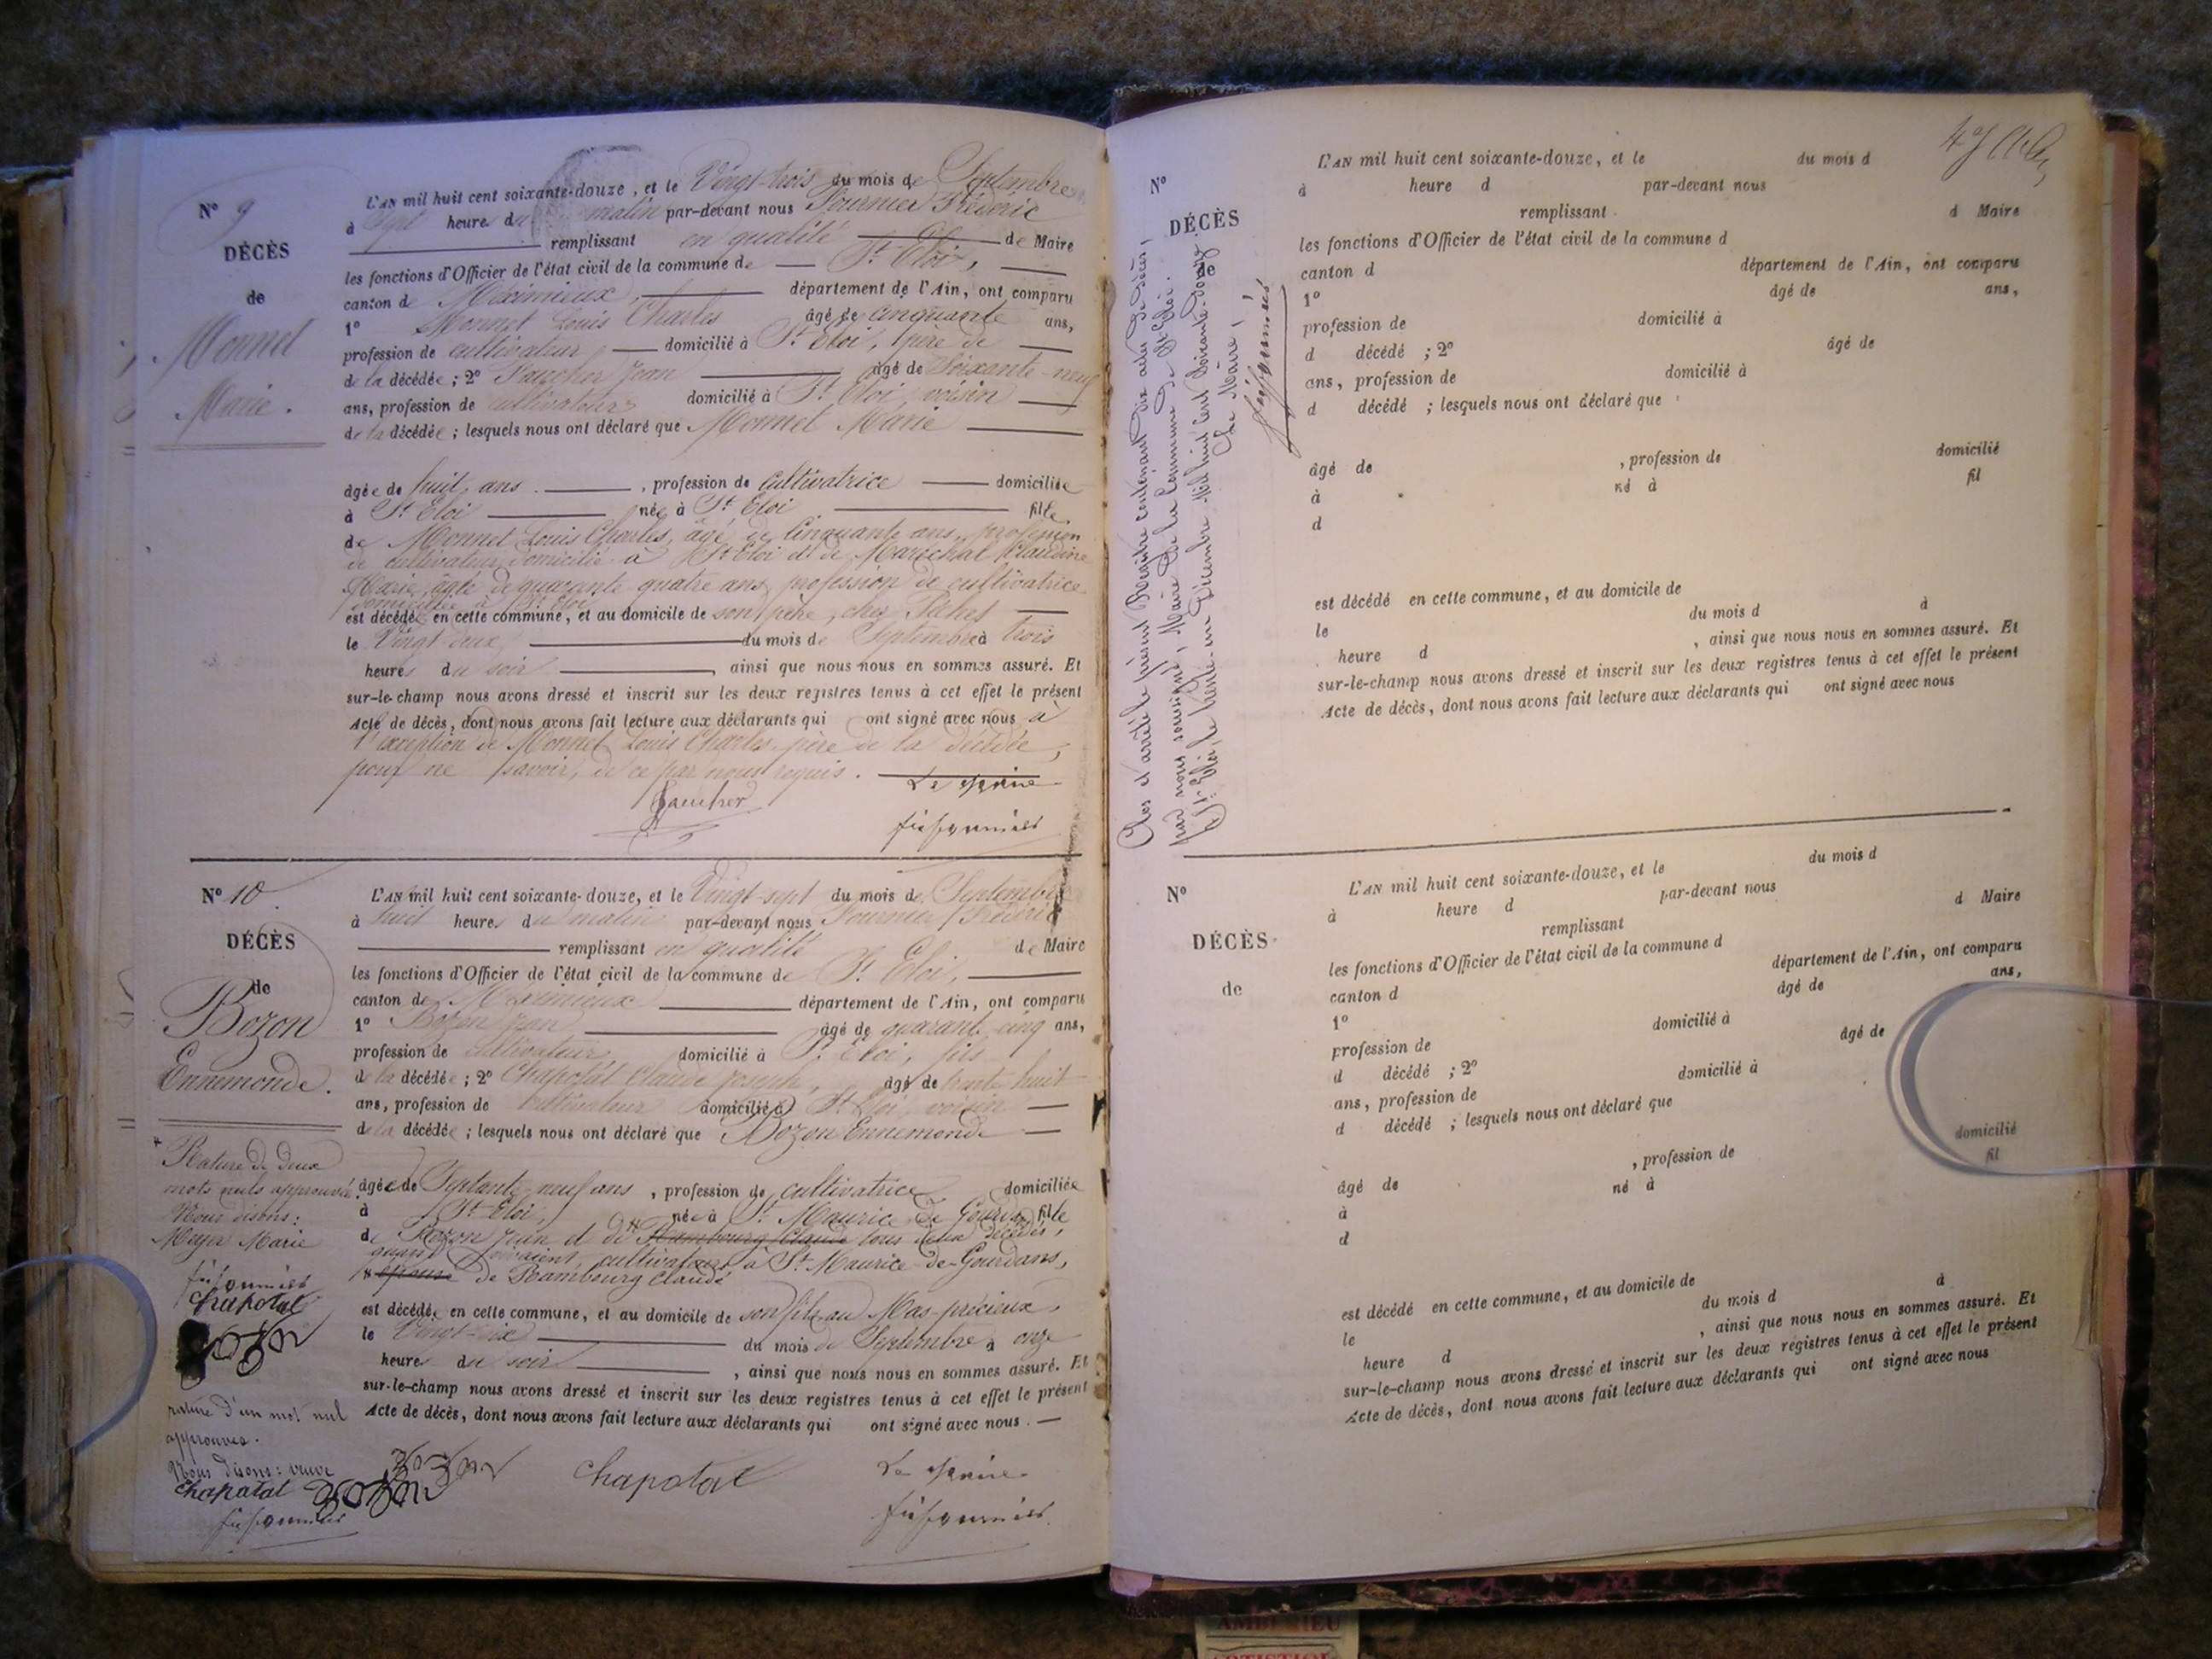 N° 9
DÉCÈS
de
Monnet
Marie.
L'AN mil huit cent soixante-douze, et le Vingt-trois du mois de Septembre
à sept heures du matin par-devant nous Fournier Fréderic
remplissant en qualité de Maire
les fonctions d'Officier de l'état civil de la commune de St Eloi,
canton de Meximieux, département de l'Ain, ont comparu
1° Monnet Louis Charles âgé de cinquante ans,
profession de cultivateur, domicilié à St Eloi, père de
de la décédée ; 2° Faucher Jean âgé de Soixante-neuf
ans, profession de cultivateur domicilié à St Eloi, voisin
de la décédée ; lesquels nous ont déclaré que Monnet Marie
âgée de huit ans, profession de cultivatrice domiciliée
à St Eloi née à St Eloi fille
de Monnet Louis Charles, âgé de Cinquante ans, profession
de cultivateur, domicilié à St Eloi et de Maréchal Claudine
Marie, âgée de quarante quatre ans, profession de cultivatrice
domiciliée à St Eloi
est décédée en cette commune, et au domicile de son père, chez
le Vingt deux du mois de Septembre à trois
heures du soir, ainsi que nous nous en sommes assuré. Et
sur-le-champ nous avons dressé et inscrit sur les deux registres tenus à cet effet le présent
Acte de décès, dont nous avons fait lecture aux déclarants qui ont signé avec nous à
l'exception de Monnet Louis Charles père de la décédée,
pour ne savoir, de ce par nous requis.
Le Maire
Faucher
N° 10.
DÉCÈS
de
Bozon
Ennemonde.
L'AN mil huit cent soixante-douze, et le Vingt-sept du mois de Septembre
à huit heures du matin par-devant nous Fournier Fréderic
remplissant en qualité de Maire
les fonctions d'Officier de l'état civil de la commune de St Eloi,
canton de Meximieux département de l'Ain, ont comparu
1° Bozon Jean âgé de quarante cinq ans,
profession de cultivateur domicilié à St Eloi, fils
de la décédée ; 2° Chapotat Claude Joseph, âgé de trente huit
ans, profession de cultivateur domicilié à St Eloi, voisin
de la décédée ; lesquels nous ont déclaré que Bozon Ennemonde
âgée de Septante neuf ans, profession de cultivatrice domiciliée
à St Eloi, née à St Maurice de Gourdans fille
de Bozon Jean et de Rambourg Claude tous deux décédés,
quand vivaient, cultivateurs à St Maurice-de-Gourdans,
épouse de Rambourg Claude
est décédée en cette commune, et au domicile de son fils au Mas-précieux,
le Vingt-six du mois de Septembre à onze
heures du soir, ainsi que nous nous en sommes assuré. Et
sur-le-champ nous avons dressé et inscrit sur les deux registres tenus à cet effet le présent
Acte de décès, dont nous avons fait lecture aux déclarants qui ont signé avec nous.
Rature de deux
mots nuls approuvée.
Nous disons :
Meyer Marie
Chapotat
Bozon
rature d'un mot nul
approuvée.
Nous disons : veuve
Chapotat Bozon
Bozon
Chapotat
Le Maire
Clos et arrêté le présent Registre contenant dix actes de décès,
par nous soussigné, Maire de la Commune de St Eloi.
à St Eloi, le trente-un Décembre Mil huit Cent Soixante-douze
Le Maire,
N°
DÉCÈS
de
L'AN mil huit cent soixante-douze, et le du mois d
à heure d par-devant nous
remplissant d Maire
les fonctions d'Officier de l'état civil de la commune d
canton d département de l'Ain, ont comparu
1° âgé de ans,
profession de domicilié à
d décédé ; 2° âgé de
ans, profession de domicilié à
d décédé ; lesquels nous ont déclaré que
âgé de , profession de domicilié
à né à fil
d
est décédé en cette commune, et au domicile de
le du mois d à
heure d , ainsi que nous nous en sommes assuré. Et
sur-le-champ nous avons dressé et inscrit sur les deux registres tenus à cet effet le présent
Acte de décès, dont nous avons fait lecture aux déclarants qui ont signé avec nous
N°
DÉCÈS
de
L'AN mil huit cent soixante-douze, et le du mois d
à heure d par-devant nous
remplissant d Maire
les fonctions d'Officier de l'état civil de la commune d
canton d département de l'Ain, ont comparu
1° âgé de ans,
profession de domicilié à
d décédé ; 2° âgé de
ans, profession de domicilié à
d décédé ; lesquels nous ont déclaré que
âgé de , profession de domicilié
à né à fil
d
est décédé en cette commune, et au domicile de
le du mois d à
heure d , ainsi que nous nous en sommes assuré. Et
sur-le-champ nous avons dressé et inscrit sur les deux registres tenus à cet effet le présent
Acte de décès, dont nous avons fait lecture aux déclarants qui ont signé avec nous